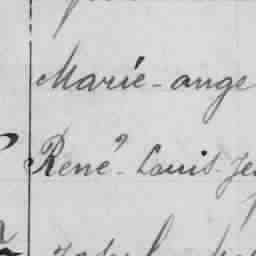 Marie-ange
René-Louis-Je